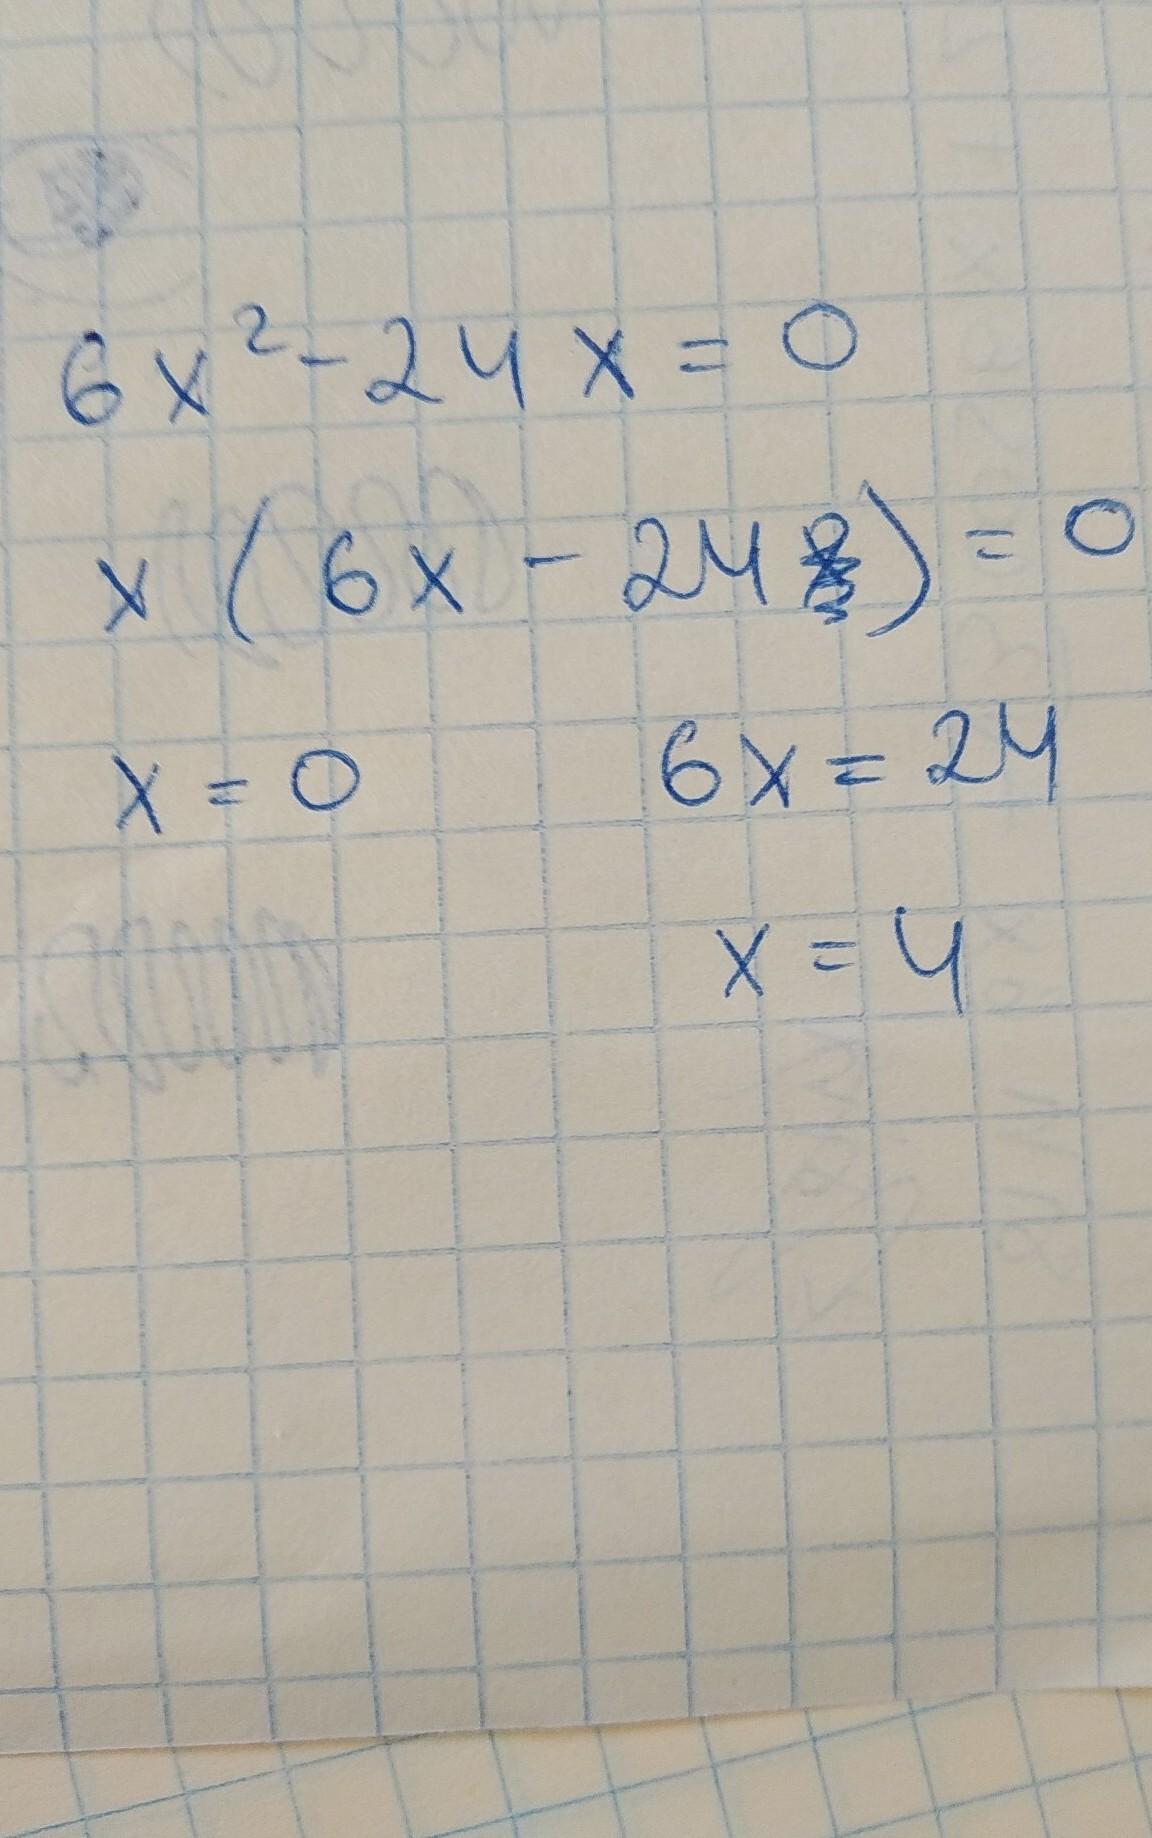 6x² - 24x = 0
x(6x - 24) = 0
x = 0 6x = 24
x = 4